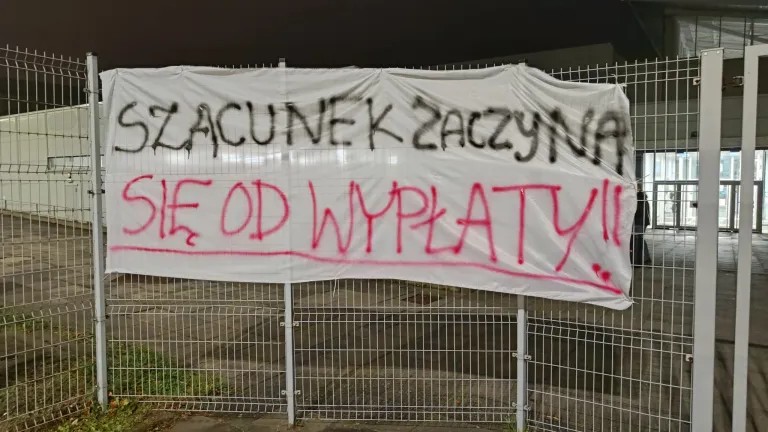 SZACUNEK ZACZYNA
SIĘ OD WYPŁATY!!